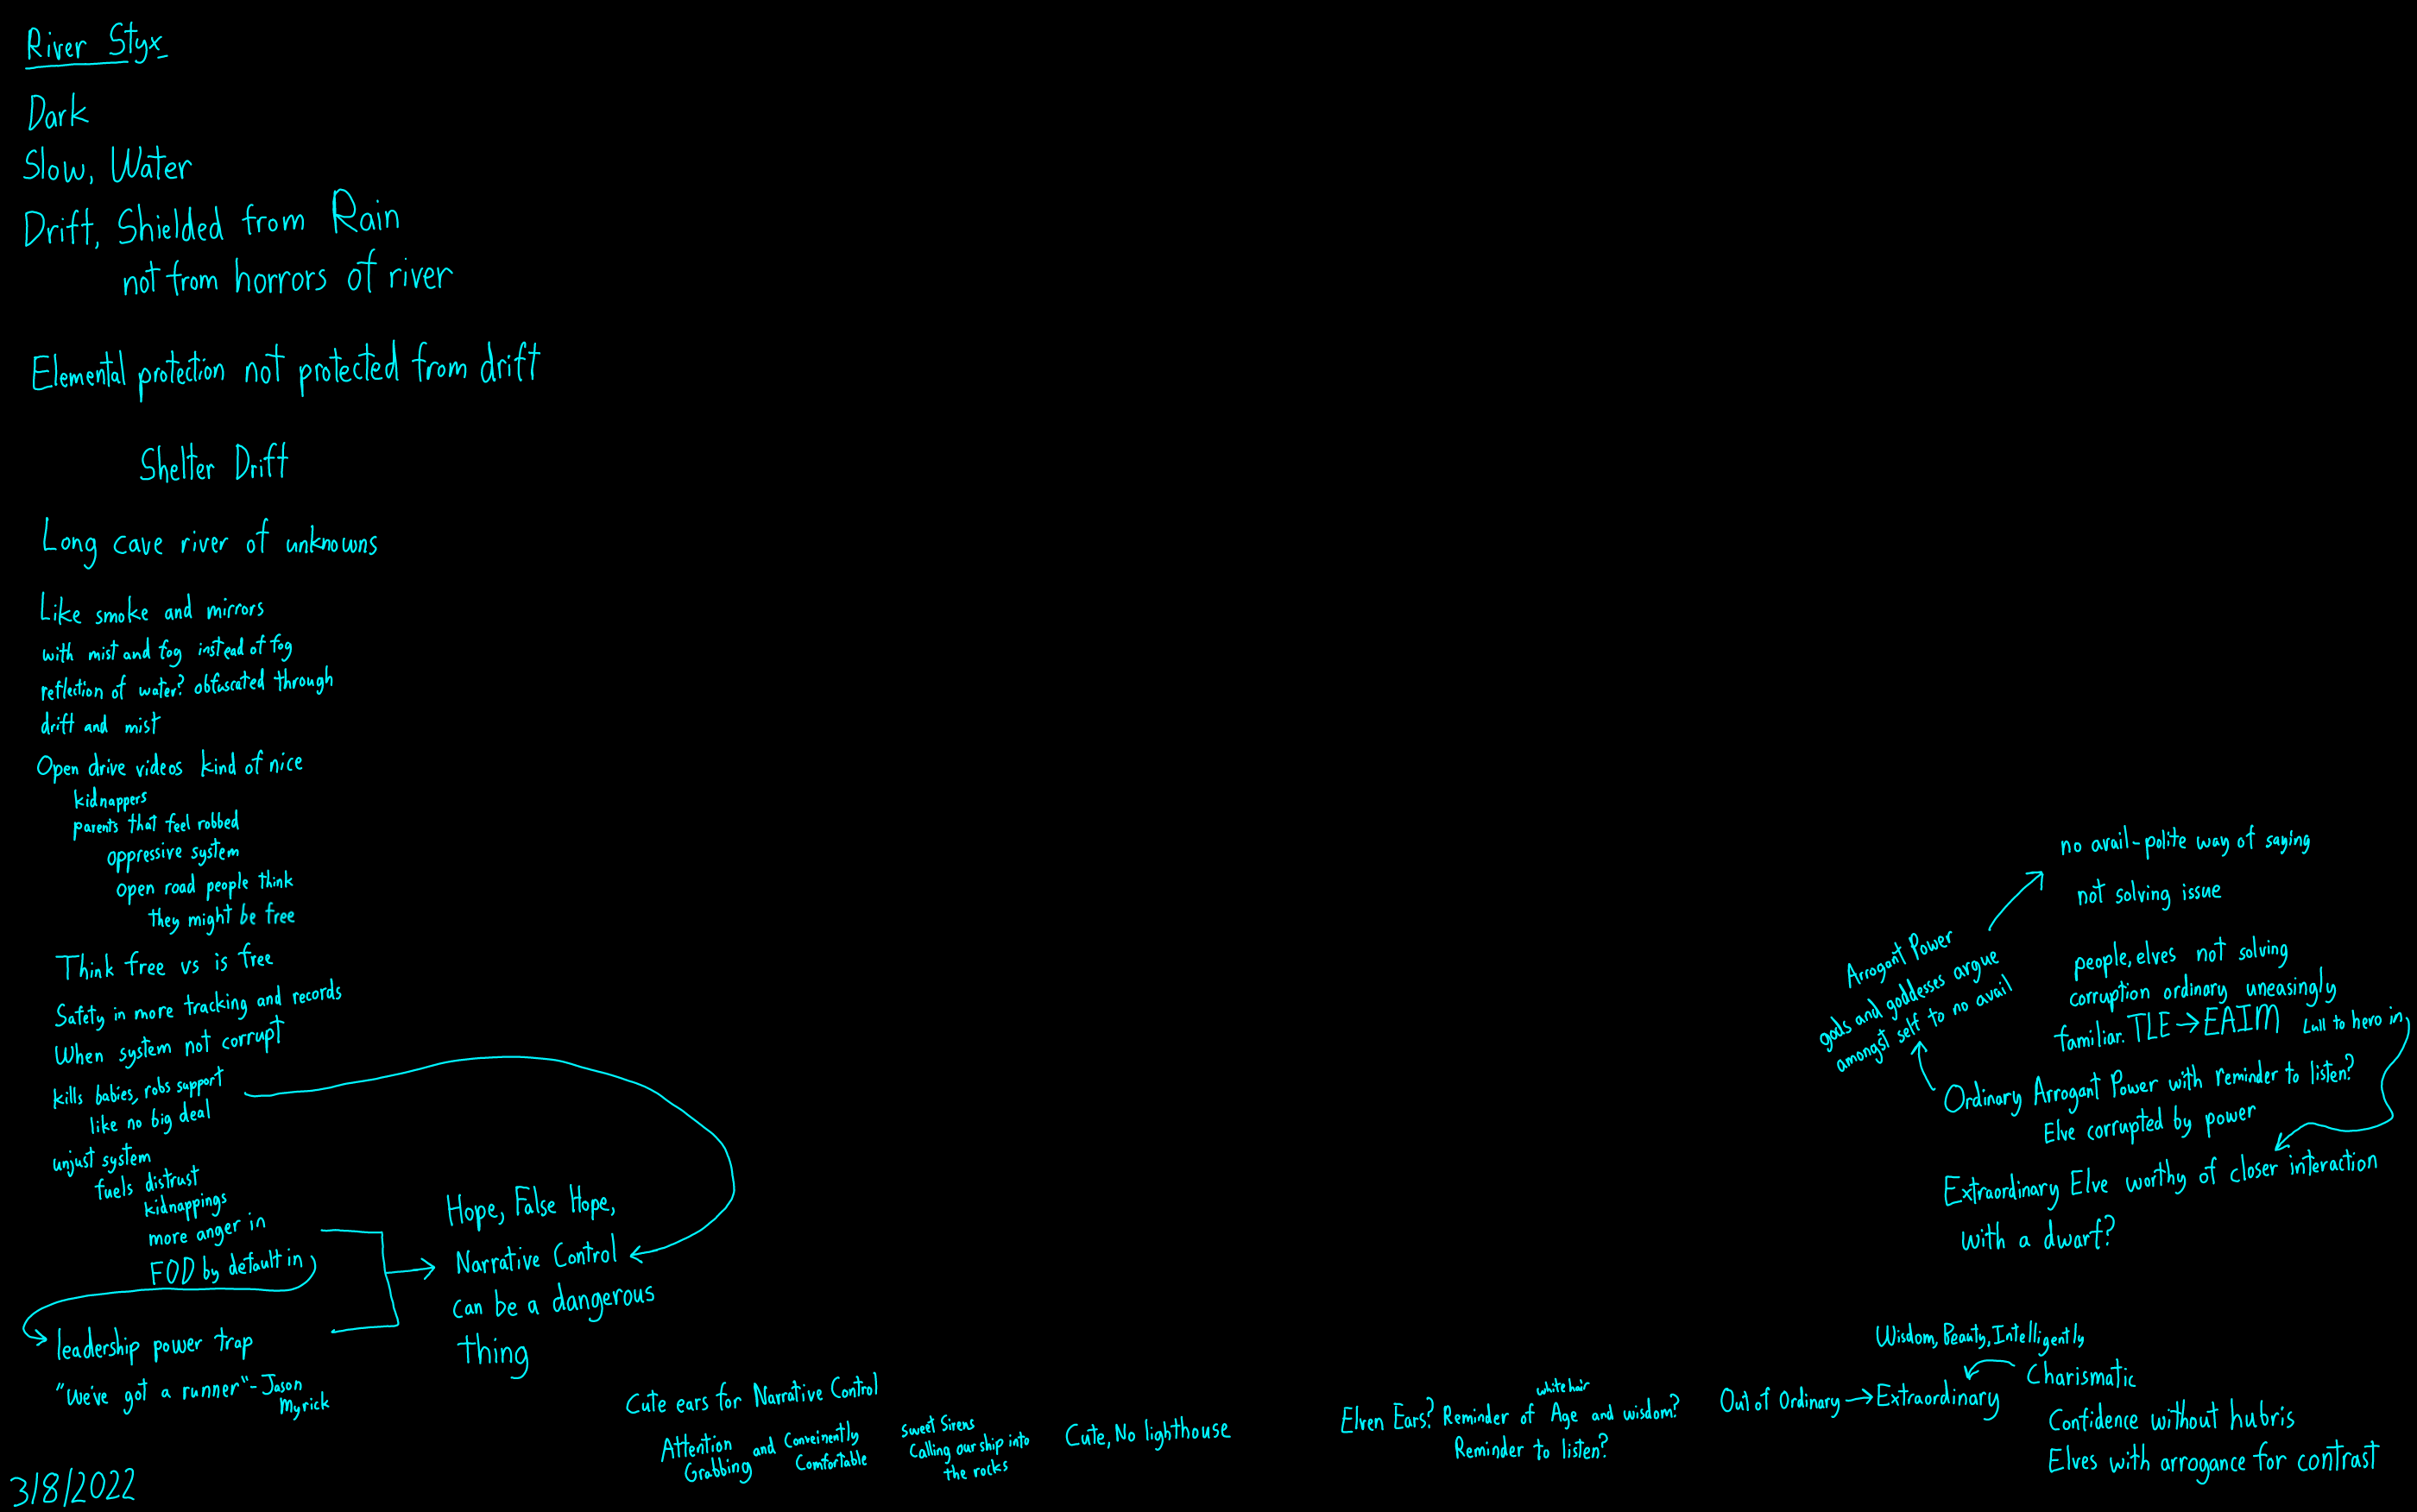 River Styx
Dark
Slow, Water
Drift, Shielded from Rain
not from horrors of river
Elemental protection not protected from drift
Shelter Drift
Long cave river of unknowns
Like smoke and mirrors
with mist and fog instead of fog
reflection of water? obfuscated through
drift and mist
Open drive videos kind of nice
kidnappers
parents that feel robbed
oppressive system
open road people think
they might be free
Think free vs is free
Safety in more tracking and records
When system not corrupt
kills babies, robs support
like no big deal
unjust system
fuels distrust
kidnappings
more anger in
FOD by default in
leadership power trap
"We've got a runner" - Jason
Myrick
3/8/2022
Hope, False Hope,
Narrative Control
can be a dangerous
thing
Cute ears for Narrative Control
Attention
Grabbing
and Conveinently
Comfortable
Sweet Sirens
Calling our ship into
the rocks
Cute, No lighthouse
white hair
Elven Ears? Reminder of Age and wisdom?
Reminder to listen?
Out of Ordinary → Extraordinary
Wisdom, Beauty, Intelligently
Charismatic
Confidence without hubris
Elves with arrogance for contrast
no avail - polite way of saying
not solving issue
Arrogant Power
gods and goddesses argue
amongst self to no avail
people, elves not solving
corruption ordinary uneasingly
familiar. TLE → EAIM Lull to hero in,
Ordinary Arrogant Power with reminder to listen?
Elve corrupted by power
Extraordinary Elve worthy of closer interaction
with a dwarf?